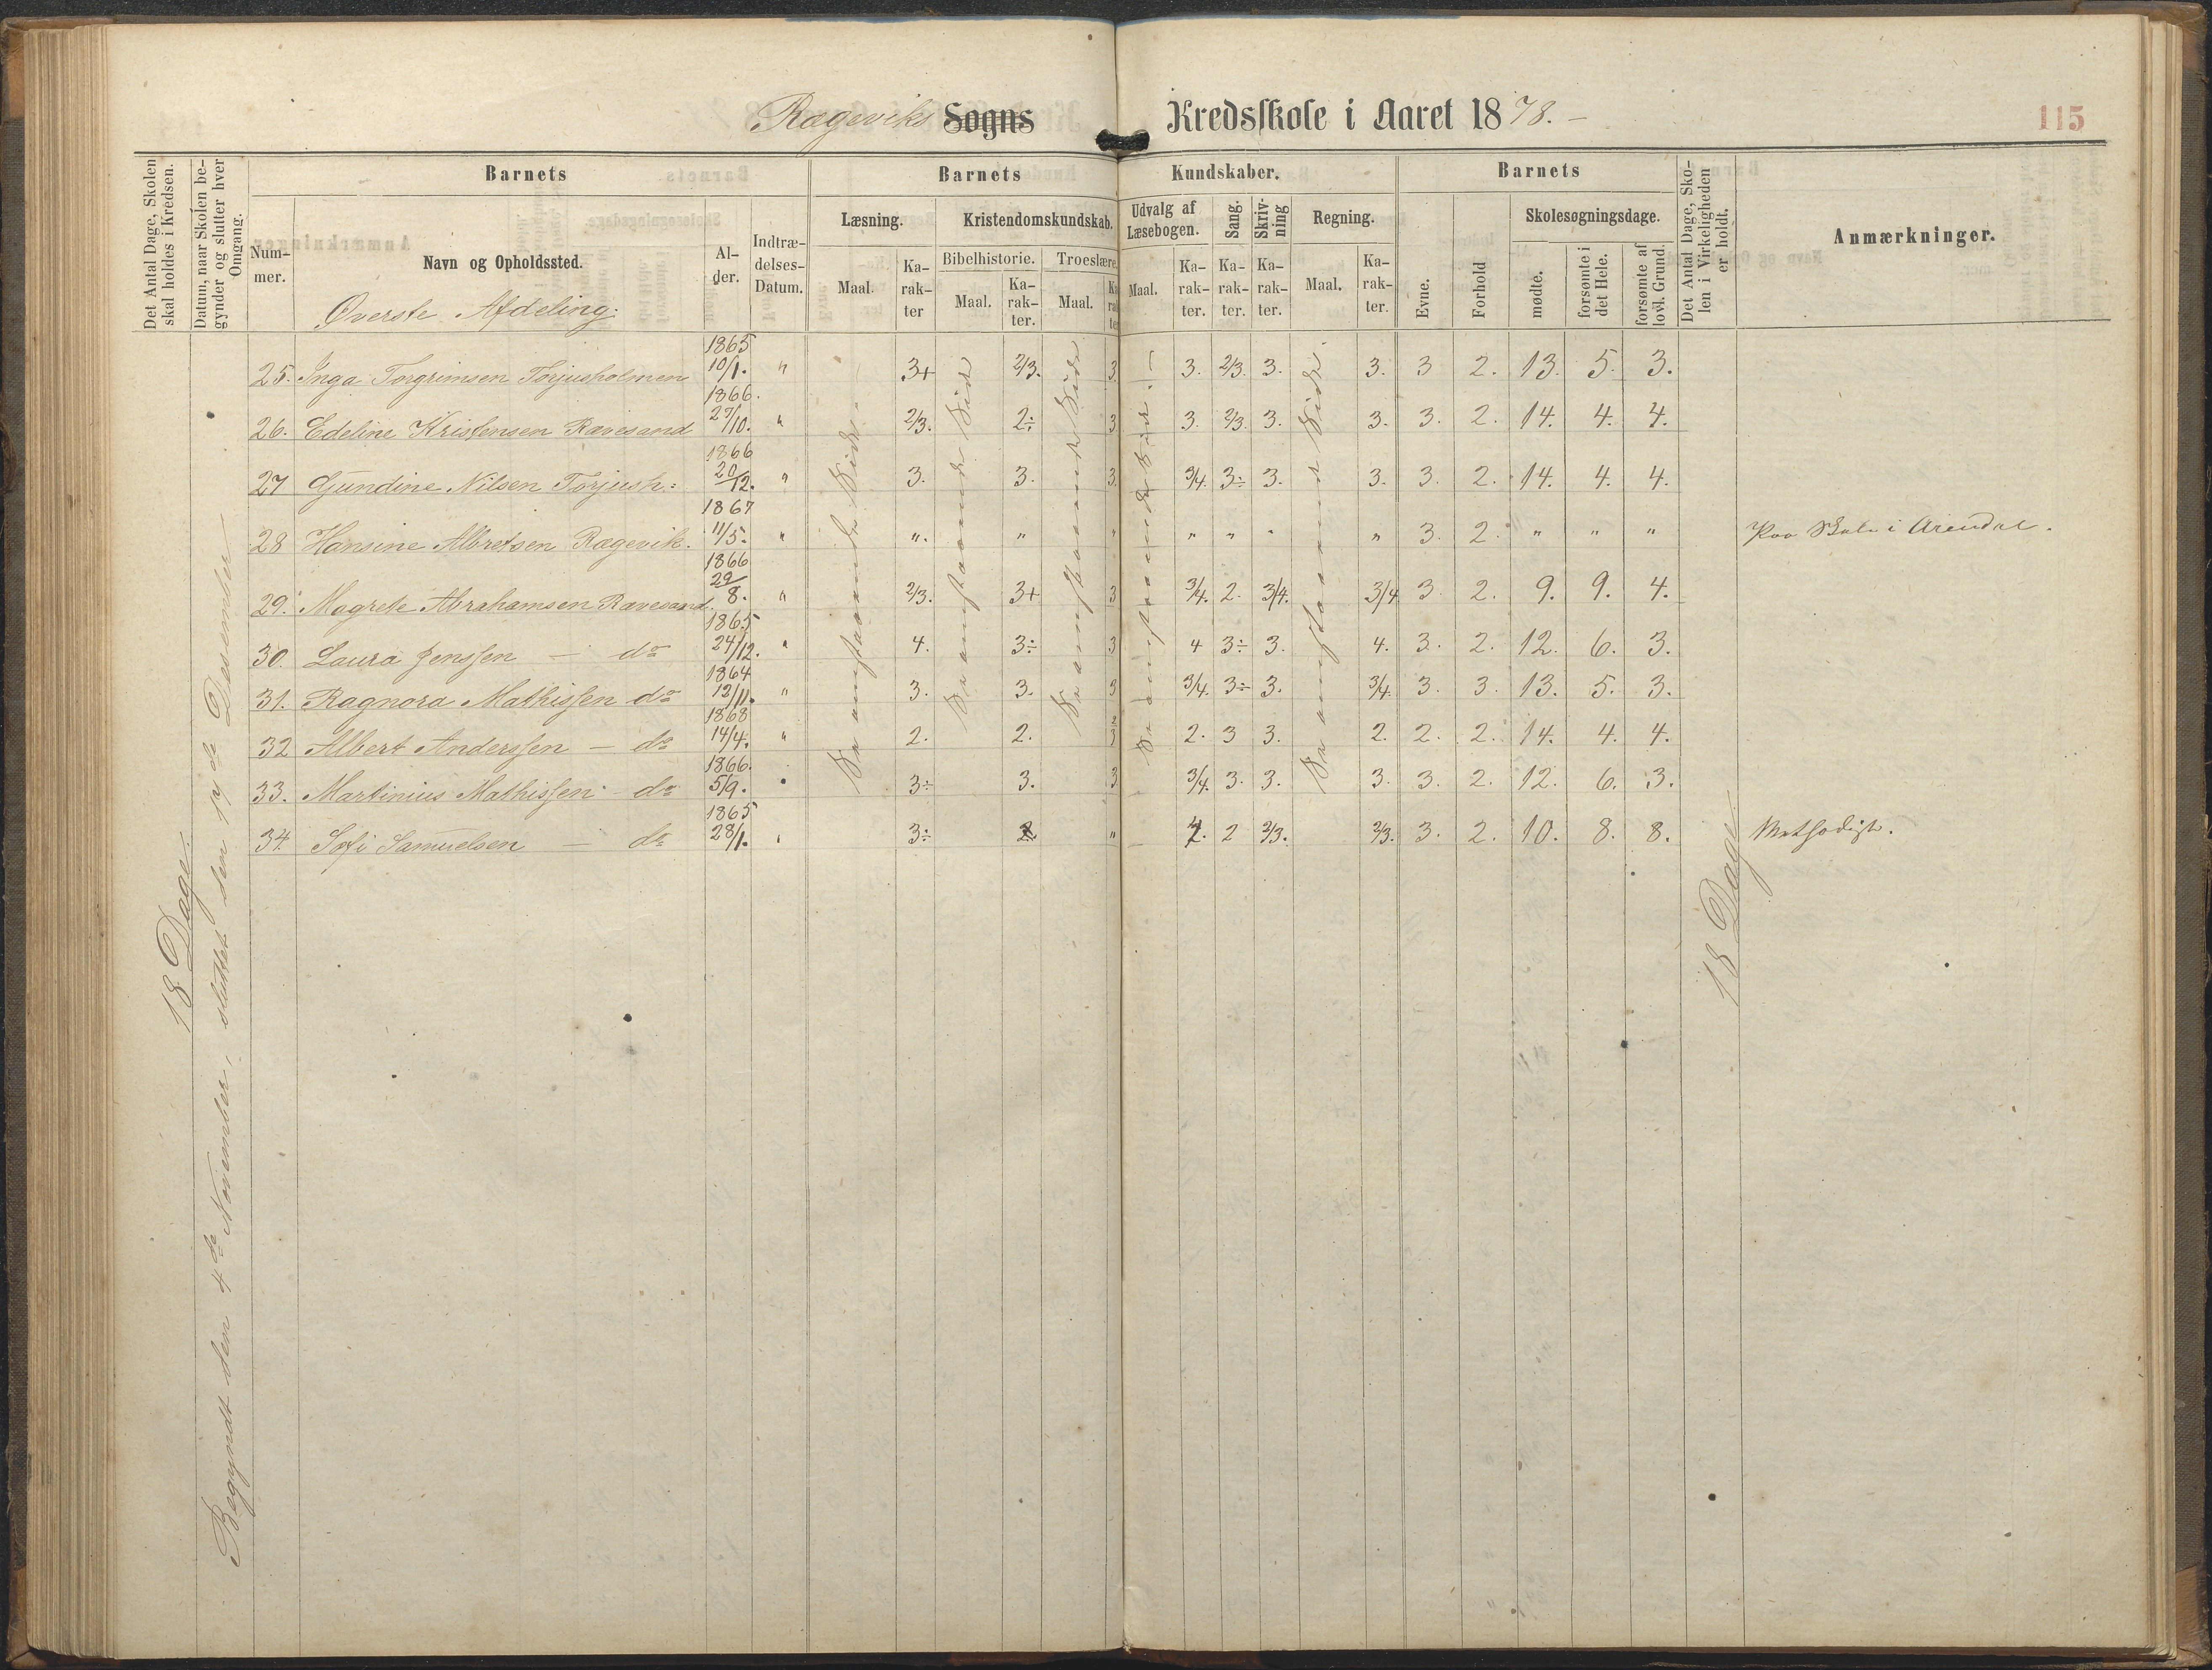 Rægeviks Sogns Kredsskole i Aaret 1878.
115
Det Antal Dage, Skolen skal holdes i Kredsen.
Datum, naar Skolen begynder og slutter hver Omgang.
Barnets
Barnets
Kundskaber.
Barnets
Det Antal Dage, Skolen i Virkeligheden er holdt.
Anmærkninger.
Nummer.
Navn og Opholdssted.
Alder.
Indtrædelses-Datum.
Læsning.
Kristendomskundskab.
Udvalg af Læsebogen.
Sang.
Skrivning
Regning.
Evne.
Forhold
Skolesøgningsdage.
Bibelhistorie.
Troeslære.
Maal.
Karakter
Maal.
Karakter.
Maal.
Karakter
Maal.
Karakter.
Karakter.
Karakter.
Maal.
Karakter.
mødte.
forsømte i det Hele.
forsømte af lovl. Grund.
Øverste Afdeling:
25. Inga Torgrimsen Torjusholmen 1865 10/1. " 3+ 2/3. 3. 3. 2/3. 3. 3. 3 2. 13. 5. 3.
26. Edeline Kristensen Ravesand 1866. 29/10. " 2/3. 2÷ 3 3. 2/3. 3. 3. 3. 2. 14. 4. 4.
27 Gundine Nilsen Torjush: 1866 20/12. " 3. 3. 3. 3/4. 3÷ 3. 3. 3. 2. 14. 4. 4.
28 Hansine Albretsen Rægevik. 1867 11/5. " ". " " " " " " 3. 2. " " " Paa Skole i Arendal.
29. Magrete Abrahamsen Ravesand. 1866 29/8. " 2/3. 3+ 3 3/4. 2. 3/4. 3/4 3 2. 9. 9. 4.
30. Laura Jenssen — do 1865 24/12. " 4. 3÷ 3 4 3÷ 3. 4. 3. 2. 12. 6. 3.
31. Ragnora Mathissen do 1864 12/11. " 3. 3. 3 3/4. 3÷ 3. 3/4. 3. 3. 13. 5. 3.
32 Albert Anderssen — do 1868 14/4. " 2. 2. 2/3 2. 3 3. 2. 2. 2. 14. 4. 4.
33. Martinius Mathissen do 1866. 5/9. " 3÷ 3. 3 3/4. 3. 3. 3. 3. 2. 12. 6. 3.
34. Sofi Samuelsen — do 1865 28/1. " 3÷ " 2 2/3. 2/3. 3. 2. 10. 8. 8. Methodist.
18 Dage.
Begyndt den 4de November, sluttet den 17de Desember
Se omstaaende Side.
Se omstaaende Side
Se omstaaende Side
Se omstaaende Side.
Se omstaaende Side.
18 Dage.